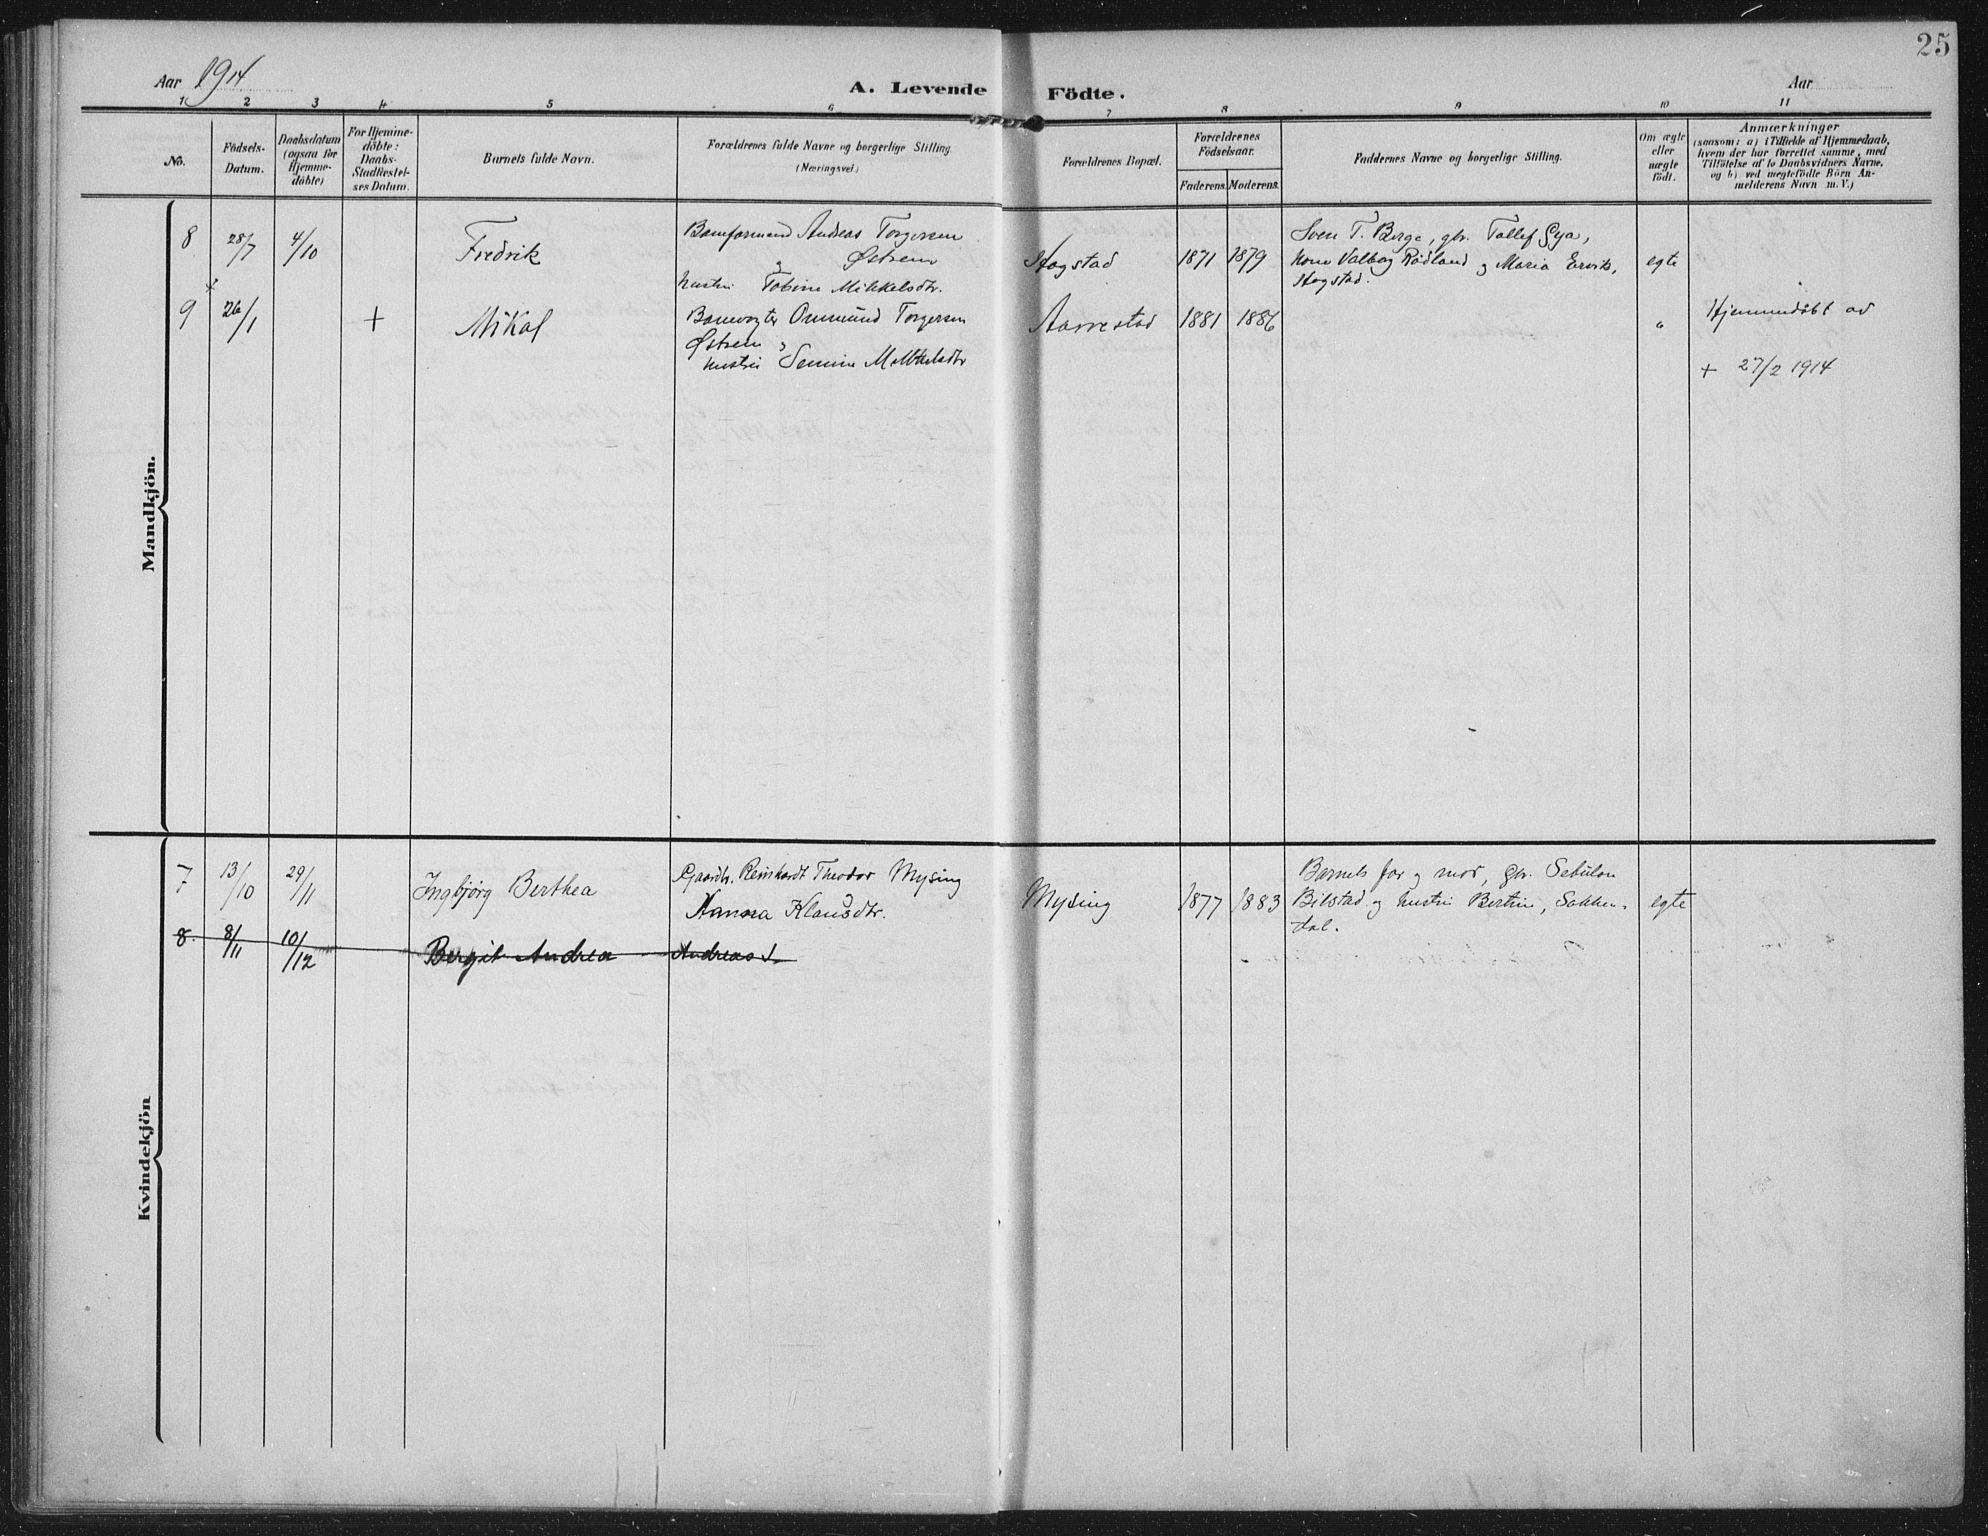 25
Aar 1914
A. Levende Födte.
Aar
1 2 3 4 5 6 7 8 9 10 11
No.
Födsels-
Datum.
Daabsdatum
(ogsaa for
Hjemme-
döbte)
For Hjemme-
döbte:
Daabs-
Stadfæstel-
ses Datum.
Barnets fulde Navn.
Forældrenes fulde Navne og borgerlige Stilling
(Næringsvei.)
Forældrenes Bopæl.
Forældrenes
Födselsaar.
Faderens. Moderens.
Faddernes Navne og borgerlige Stilling.
Om ægte
eller
uægte
födt.
Anmærkninger
(saasom: a) i Tilfælde af Hjemmedaab,
hvem der har forrettet samme, med
Tilföielse af to Daabsvidners Navne,
og b) ved uegtefödte Börn An-
melderens Navn m. V.)
Mandkjön.
8 28/7 4/10 Fredrik
Baneformand Andreas Torgersen
Østrem
hustru Tobine Mikkelsdtr.
Hogstad 1871 1879
Sven T. Berge, gbr. Tollef Gya,
kone Valborg Rødland og Maria Ervik,
Hogstad.
egte
9 26/1 + Mikal
Banevogter Ommund Torgersen
Østrem og
hustru Semine Mikkelsdtr
Aarrestad 1881 1886
"
Hjemmedøbt av
+ 27/2 1914
Kvindekjön
7 13/10 29/11 Ingbjørg Berthea
Gaardbr. Reinhardt Theodor Mysing
Hanna Klausdtr.
Mysing 1877 1883
Barnets far og mor, gbr. Sebulon
Bilstad og hustru Bertine, Sokken-
dal.
egte
8 8/11 10/12 Bergit Andrea Andreas